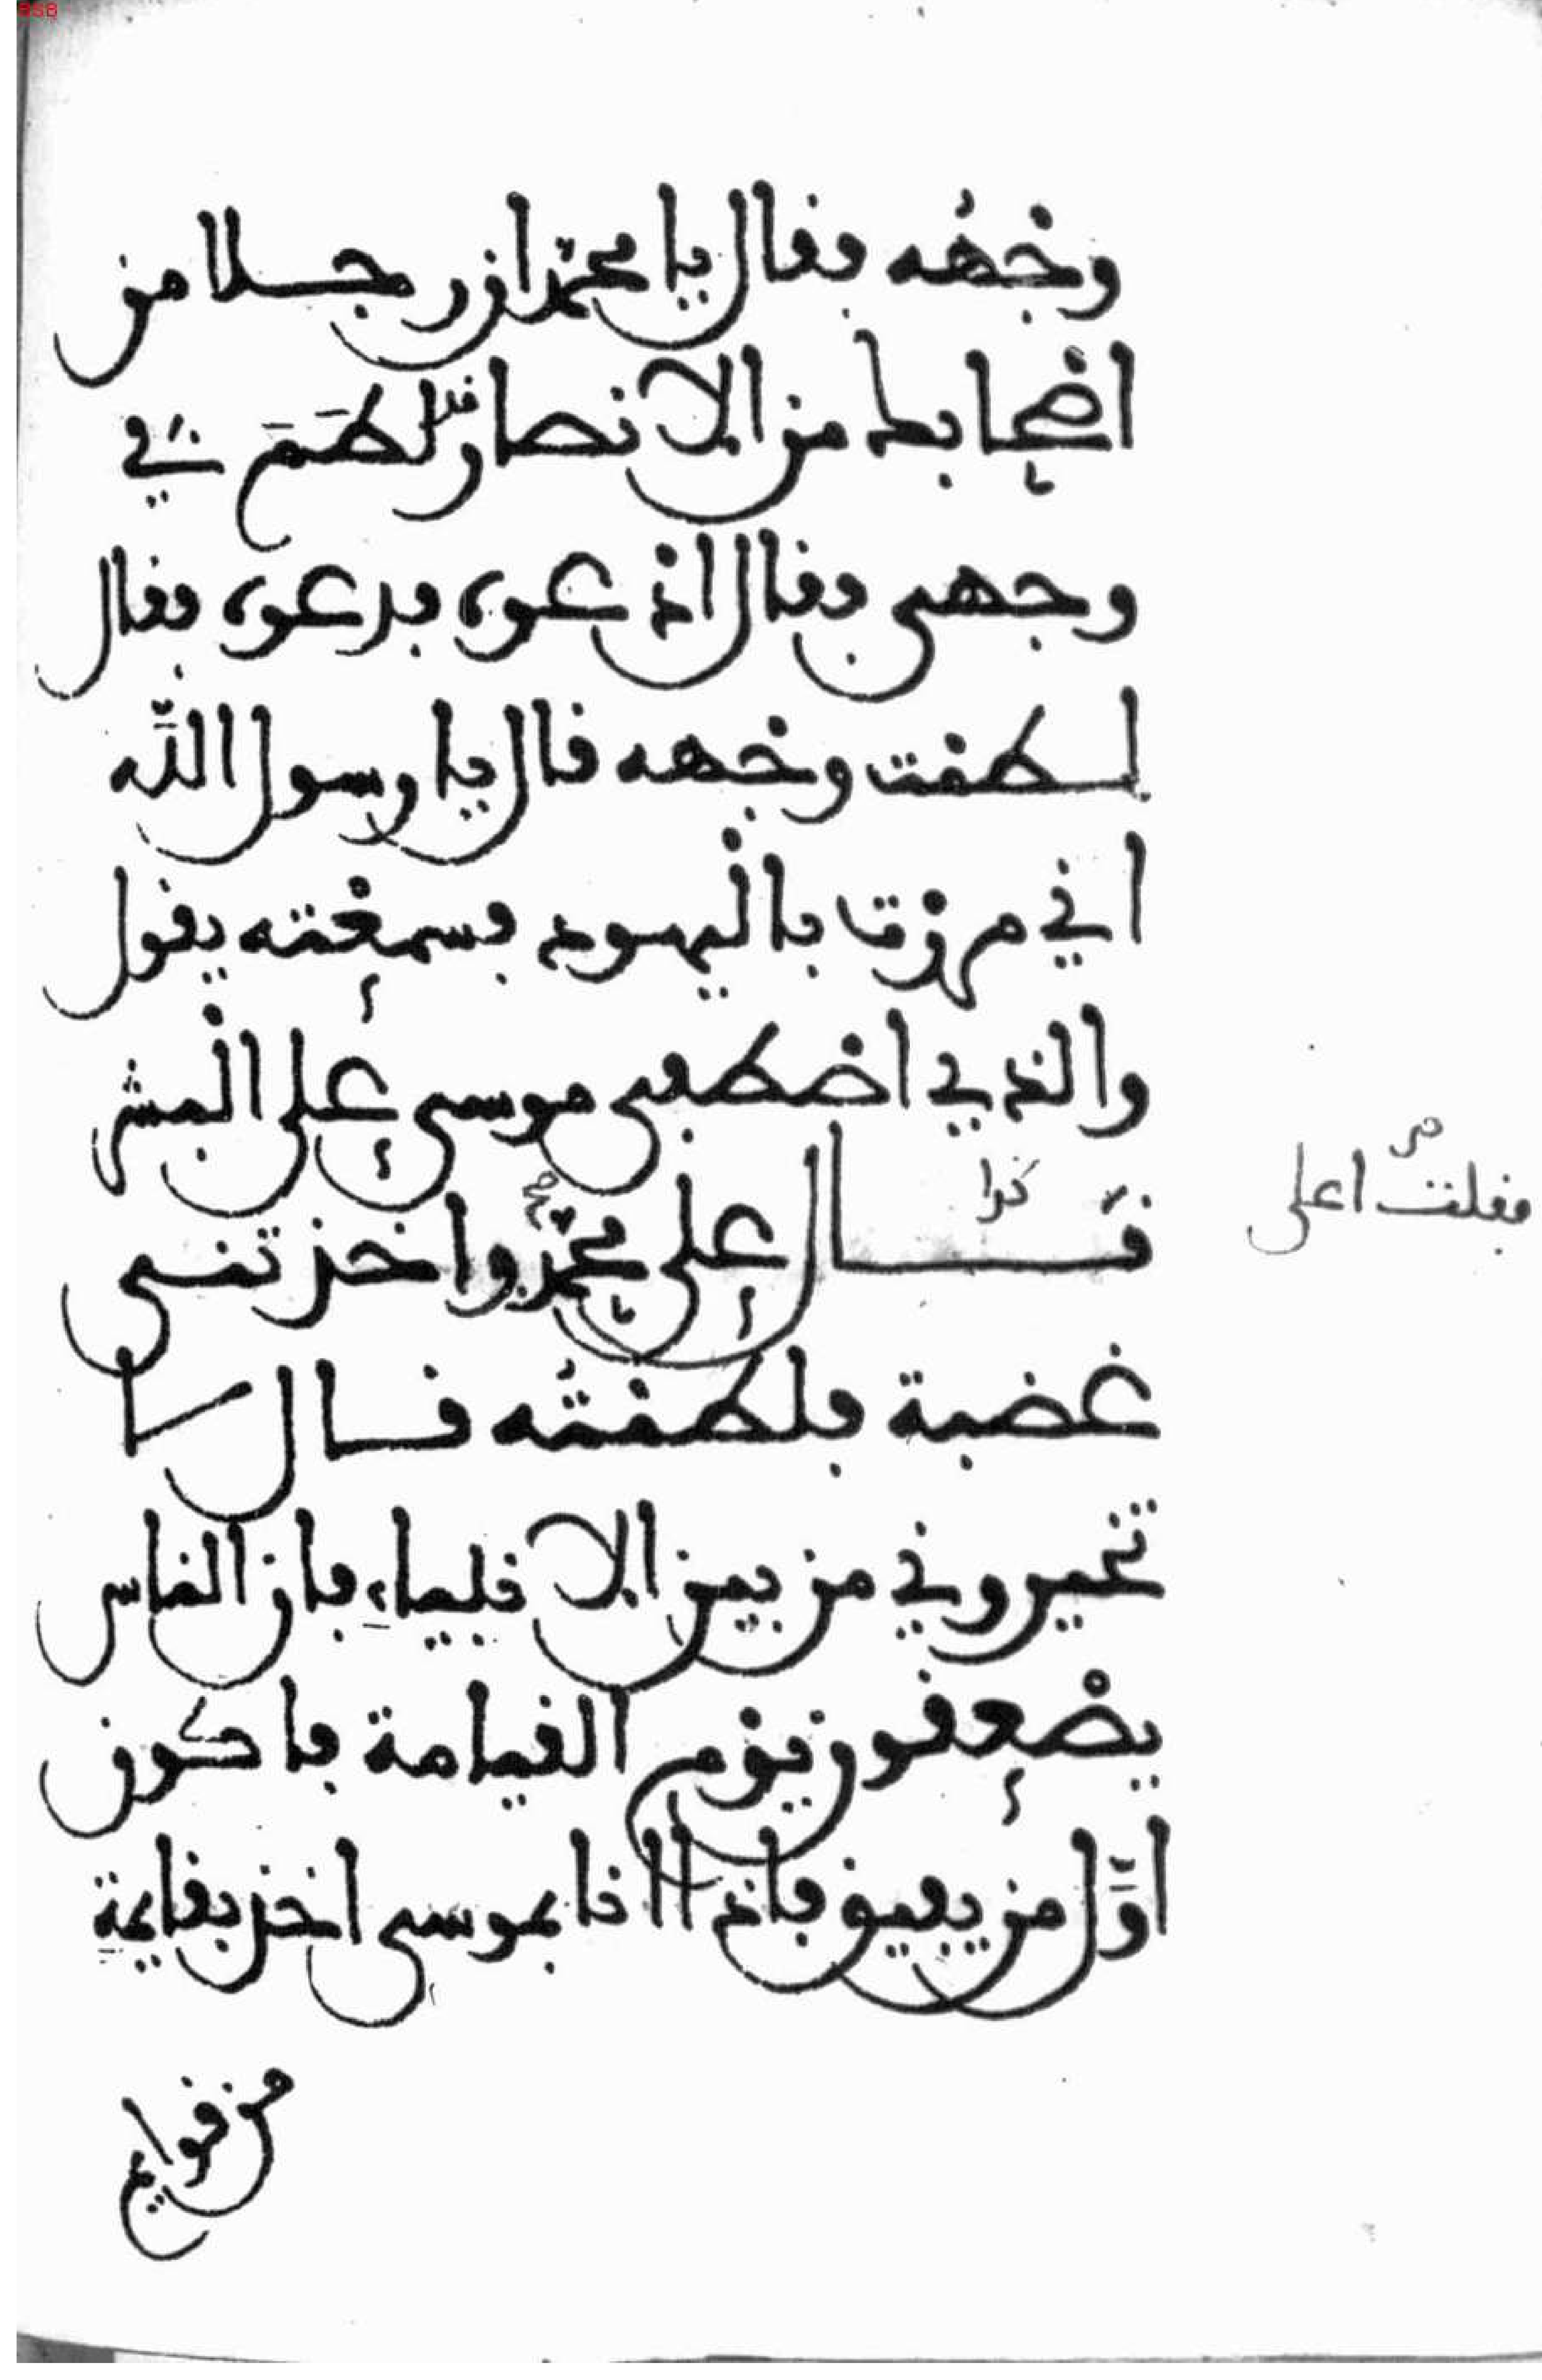 وجهه فقال يا محمد ان رجلا من
اصحابك من الانصار قد لطم في
وجهي فقال ادعوه فدعوه فقال
لم لطمت وجهه قال يا رسول الله
اني مررت باليهود فسمعته يقول
والذي اصطفى موسى على البشر
قال على محمد واخذتني
كذا
فقلت اعلى
غضبة فلطمته قال لا
تخيروني من بين الانبياء فان الناس
يصعقون يوم القيامة فاكون
اول من يفيق فاذا انا بموسى اخذ بقايمة
من قوايم